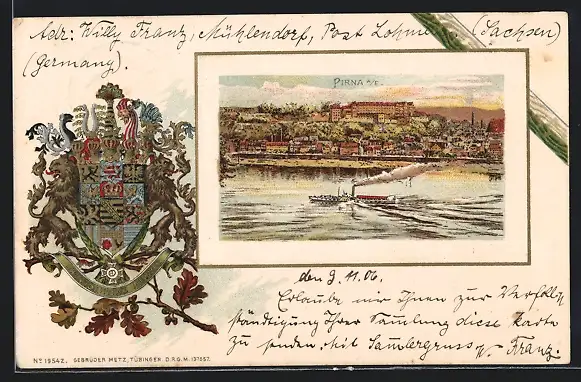 Adr: Willy Franz, Mühlendorf, Post Lohmen. (Sachsen)
(Germany).
PIRNA a/E.
den 9. 11. 06.
Erlaube mir Ihnen zur Vervoll-
ständigung Ihrer Sammlung diese Karte
zu senden, Mit Sammlergruss W. Franz.
No 19542. GEBRÜDER METZ, TÜBINGEN. D.R.G.M. 137657.